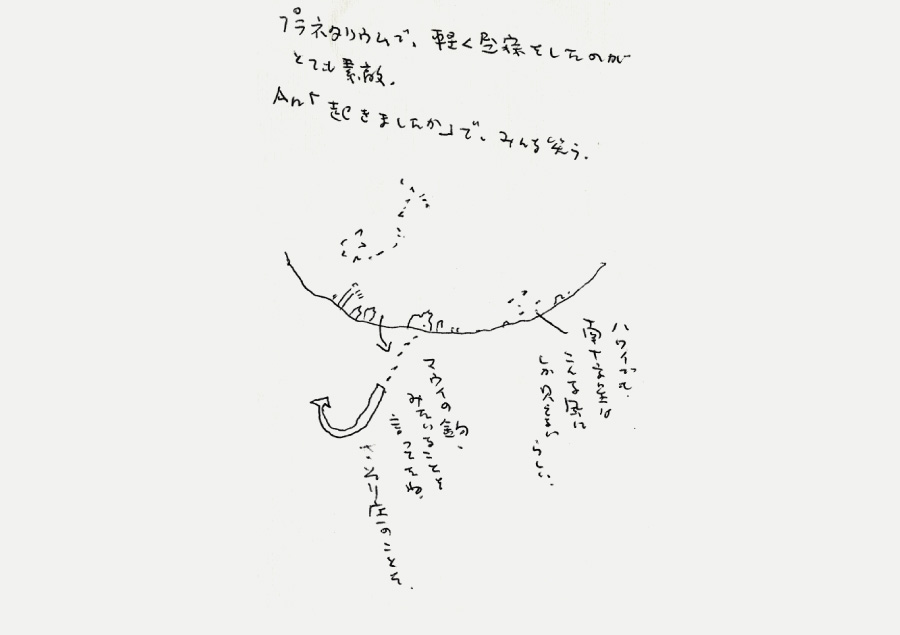 プラネタリウムで、軽く昼寝をしたのが
とても素敵。
An「起きましたか」で、みんな笑う。
ハワイでも、
南十字星は
こんな風に
しか見えない
らしい。
マウイの釣
みたいなことを
言ってたね。
さそり座のことを。